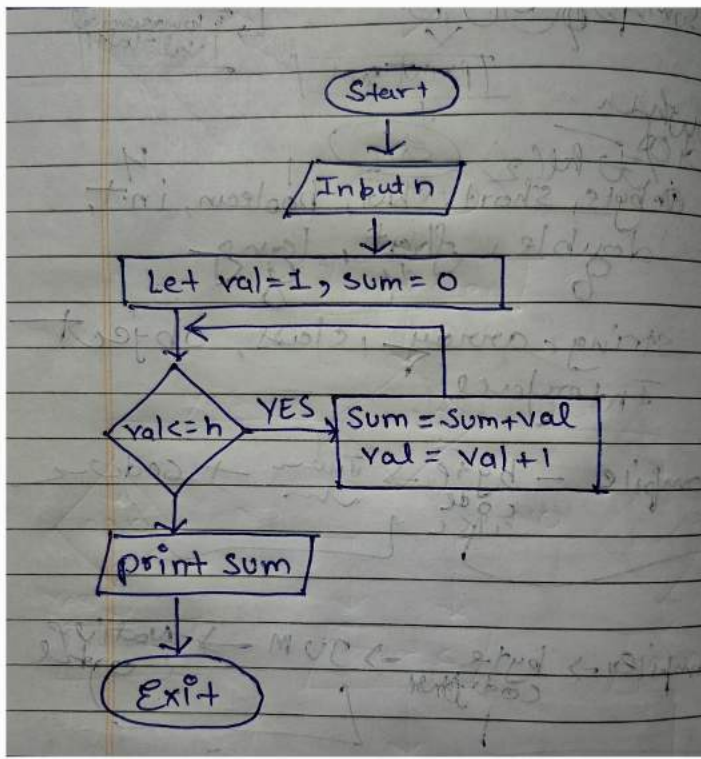 Start
Input n
Let val=1, sum=0
val<=n
YES
Sum = Sum+val
val = val+1
print sum
Exit